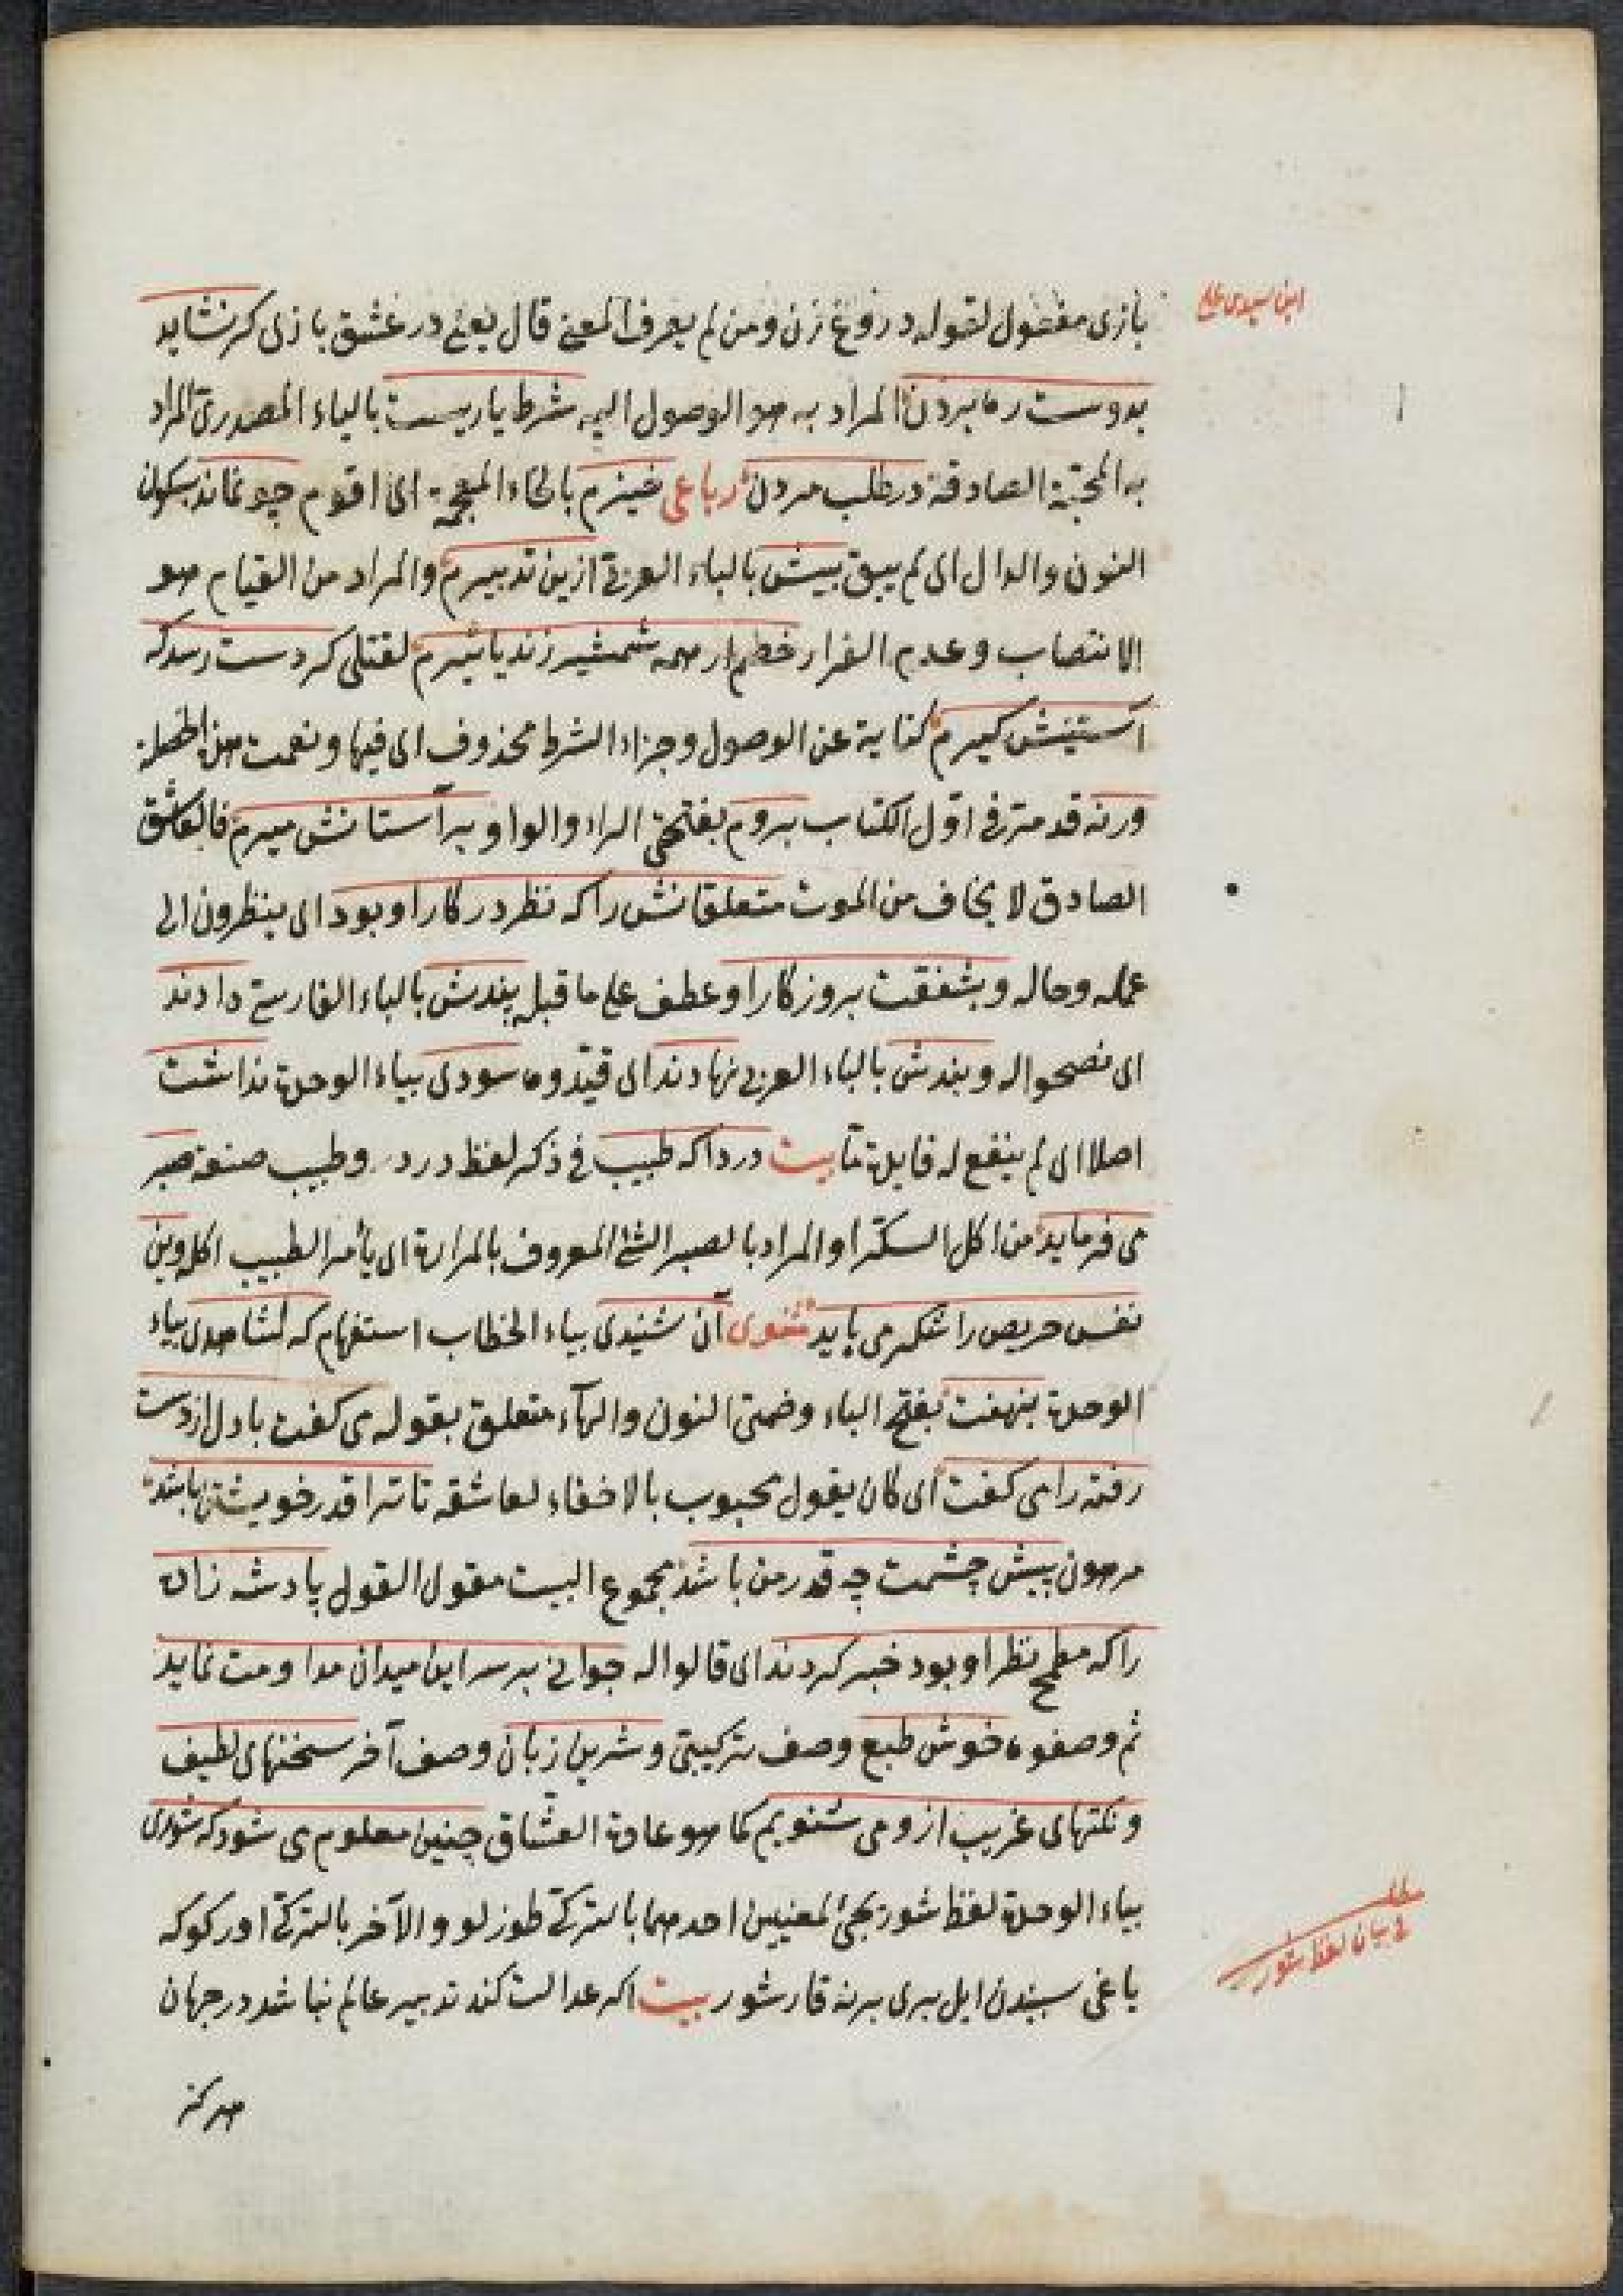 بازی مفعول لقوله دروغ زن ومن لم يعرف المعنى قال يعنى در عشق بازی كر نشايد
بدوست ره بردن المراد به هو الوصول اليه شرط ياريست بالياء المصدرى المراد
به المحبة الصادقة در طلب مردن رباعى خيزم بالخاء المعجمة اى اقوم چو نماند بسكون
النون والدال اى لم يبق بيش بالباء العربى ازين تدبيرم والمراد من القيام هو
الانتصاب وعدم الفرار خصم ار همه شمشير زند يا تيرم لقتلى كر دست رسد كه
آستينش كيرم كناية عن الوصول وجزاء الشرط محذوف اى فبها ونعمت هذه الخصلة
ورنه قد مر فى اول الكتاب بروم بفتحتى الراء والواو بر آستانش ميرم فالعاشق
الصادق لا يخاف من الموت متعلقانش را كه نظر در كار او بود اى ينظرون الى
عمله وحاله وبشفقت بروزكار او عطف على ما قبله پندش بالباء الفارسية دادند
اى نصحوا له وبندش بالباء العربى نهادند اى قيدوه سودى بياء الوحدة نداشت
اصلا اى لم ينفع له فايدة ما بيت دردا كه طبيب فى ذكر لفظ درد وطبيب صنعة صبر
مى فرمايد من اكل السكر او المراد بالصبر الشئ المعروف بالمرارة اى يأمر الطبيب اكله وين
نفس حريص را شكر مى بايد مثنوى آن شنيدى بياء الخطاب استفهام كه لشاهدى بياء
الوحدة بنهفت بفتح الباء وضمتى النون والهاء متعلق بقوله مى كفت با دل از دست
رفته را مى كفت اى كان يقول محبوب بالاخفاء لعاشقه تا ترا قدر خويشتن باشد
مرهون پيش چشمت چه قدر من باشد مجموع البيت مقول القول پادشه زاده
را كه مطمح نظر او بود خبر كردند اى قالوا له جوانى بر سر اين ميدان مداومت نمايد
ثم وصفوه خوش طبع وصف تركيبى وشرين زبان وصف آخر سخنهاى لطيف
ونكتهاى غريب از و مى شنويم كما هو عادة العشاق چنين معلوم مى شود كه شورى
بياء الوحدة لفظ شور يجئ لمعنيين احدهما بالتركى طوزلو والآخر بالتركى اور كوكه
باغى سبندن ايل برى برينه قار شور بيت اكر عدالت كند تدبير عالم نباشد در جهان
هر كز
مطلب
فى بيان لفظ شور